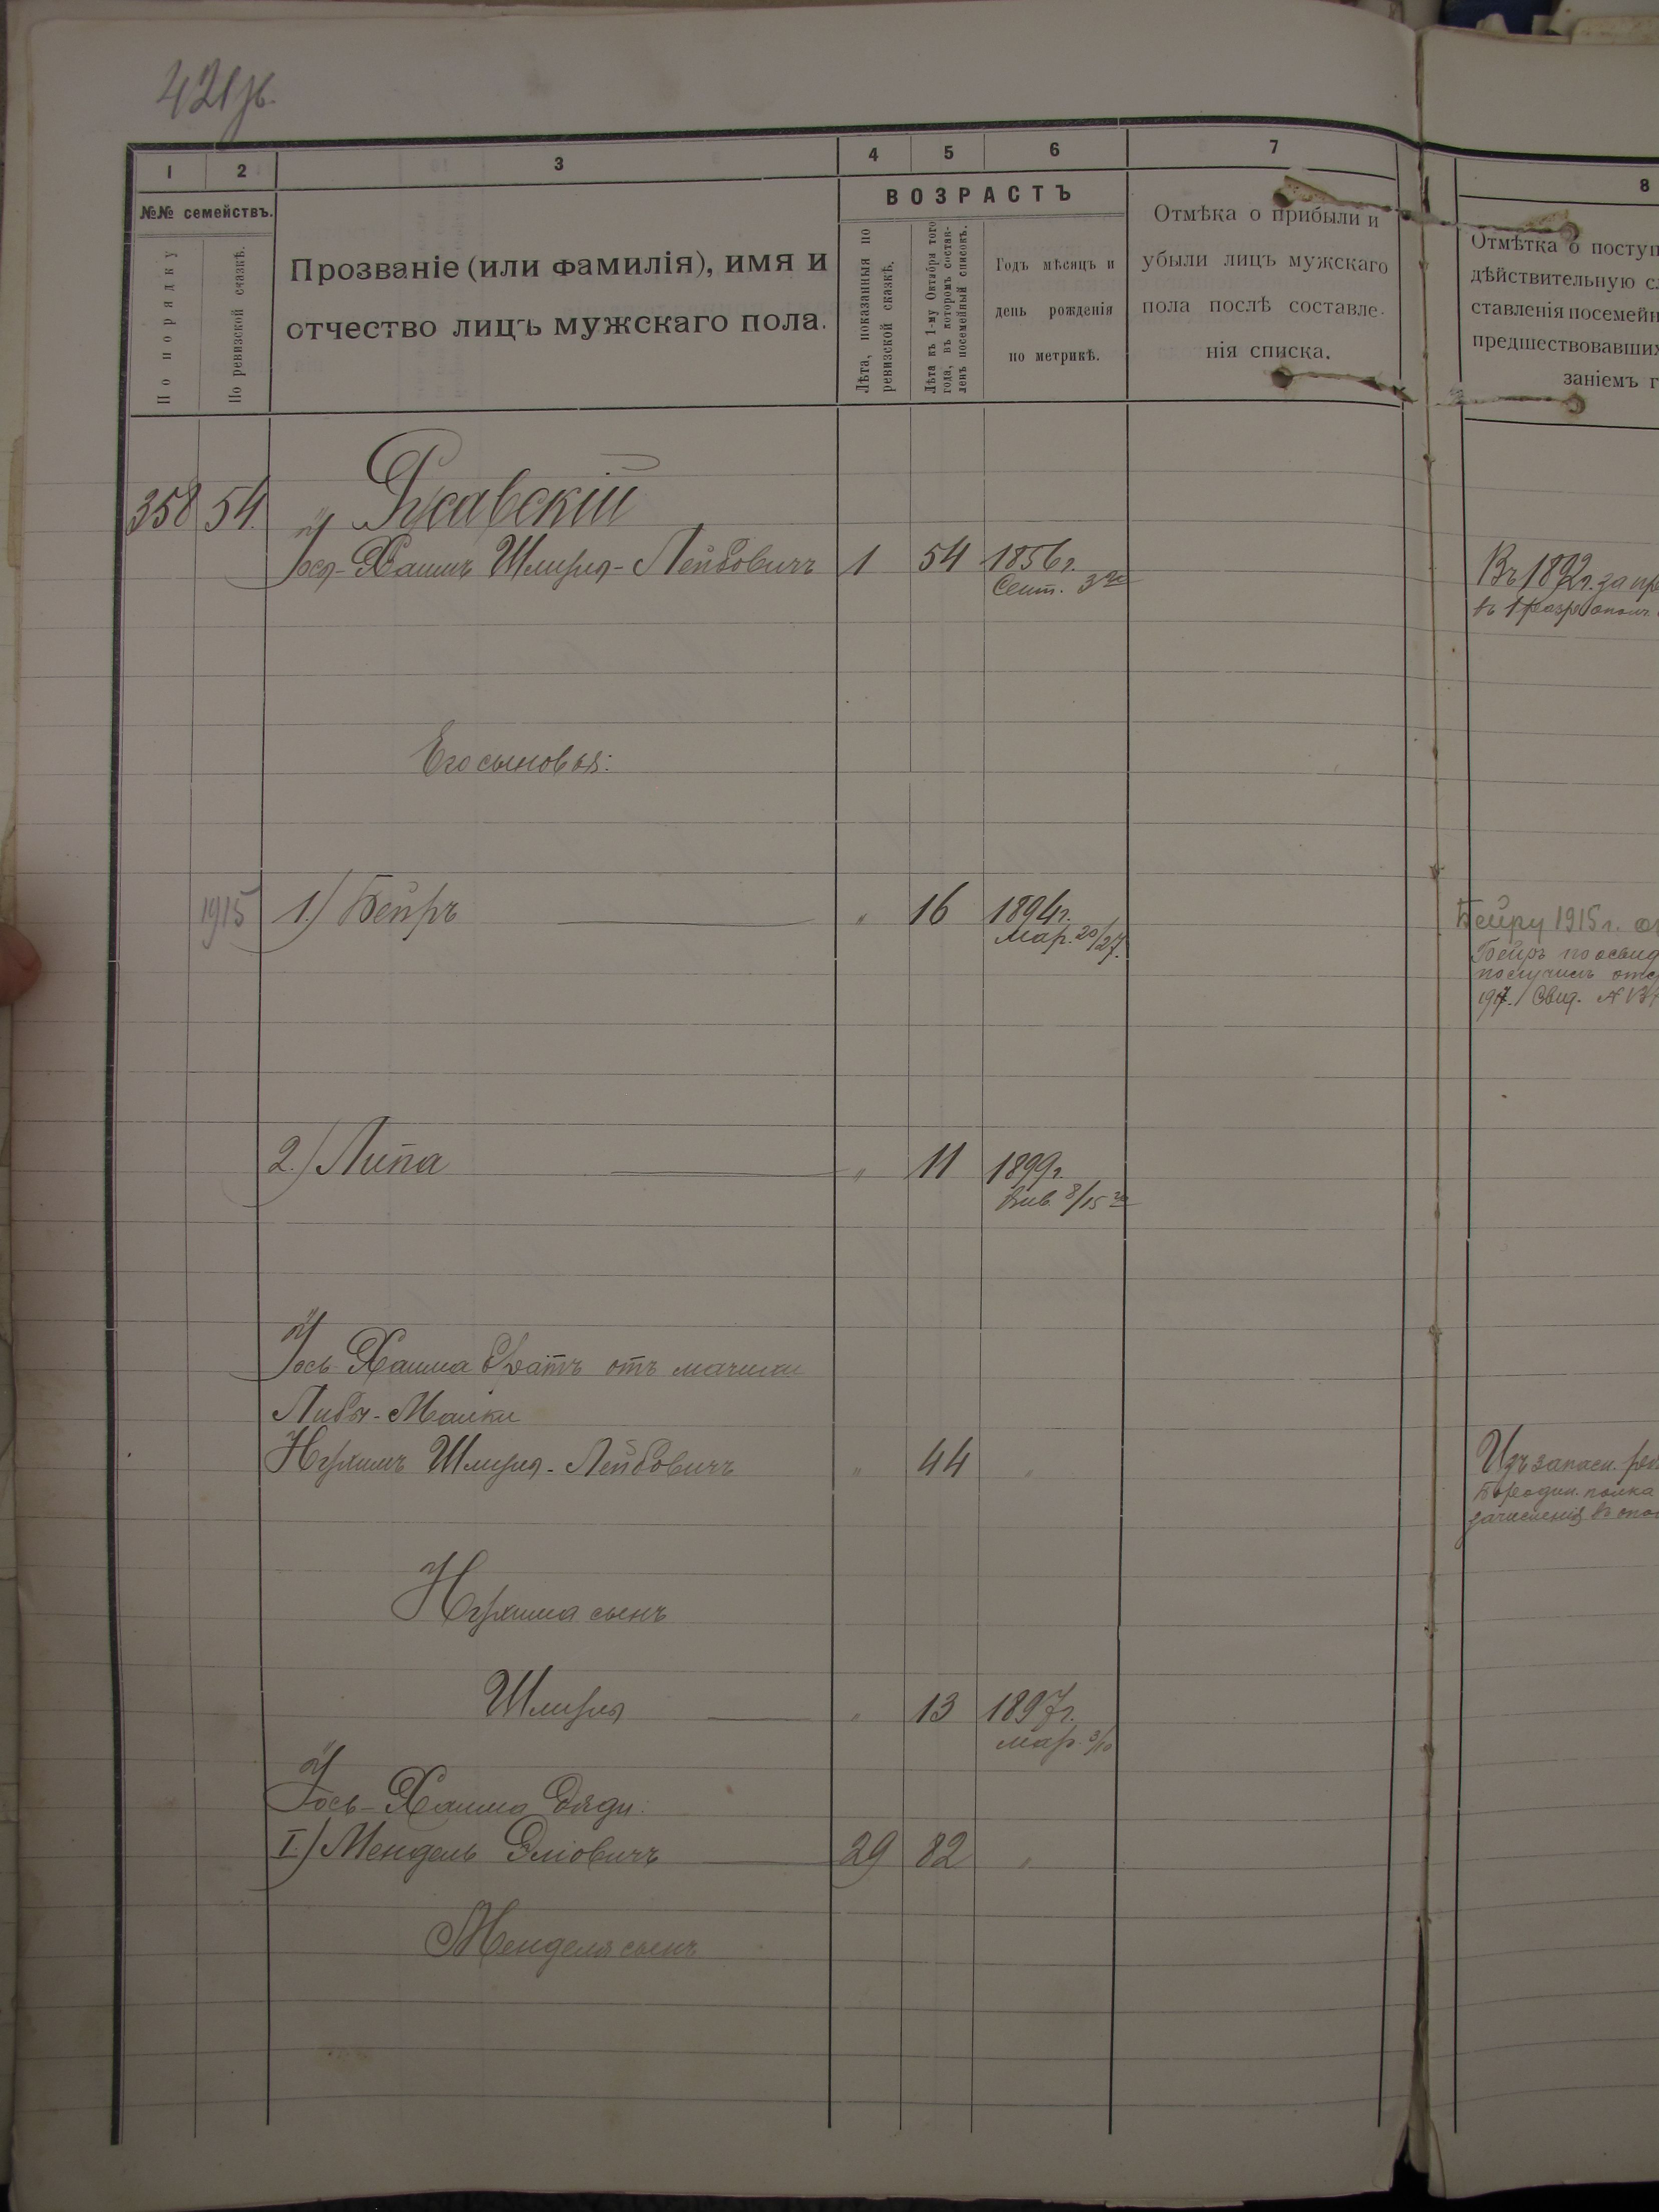 421
1 2 3 4 5 6 7 8
№№ семействъ.
По порядку
По ревизской сказкѣ.
Прозваніе (или фамилія), имя и
отчество лицъ мужскаго пола.
ВОЗРАСТЪ
Лѣта, показанныя по
ревизской сказкѣ.
Лѣта къ 1-му Октября того
года, въ которомъ состав-
ленъ посемейный списокъ.
Годъ мѣсяцъ и
день рожденія
по метрикѣ.
Отмѣка о прибыли и
убыли лицъ мужскаго
пола послѣ составле-
нія списка.
Отмѣтка о поступ
дѣйствительную сл
ставленія посемейн
предшествовавших
заніемъ г
358 54. Ржавскій
Іося-Хаимъ Шлиума-Лейбовичъ 1 54 1856г.
Сент. 3го
Въ 1892г. за пр
въ 1 разр. ополч.
Его сыновья:
1915 1.) Бейръ " 16 1894г.
Мар. 20/27.
Бейру 1915 г. от
Бейръ по освид
получилъ отс
1917. Свид. №
2.) Липа " 11 1899г.
Янв. 8/15го
Іось-Хаима братъ отъ мачихи
Либы-Малки
Нухимъ Лейбовичъ " 44 "
Изъ запасн. ря
Бородин. полка
зачисленія въ опол
Нухима сынъ
" 13 1897г.
Мар. 3/10
Іось-Хаима дяди:
I.) Мендель Эліовичъ 29 82 "
Менделя сынъ